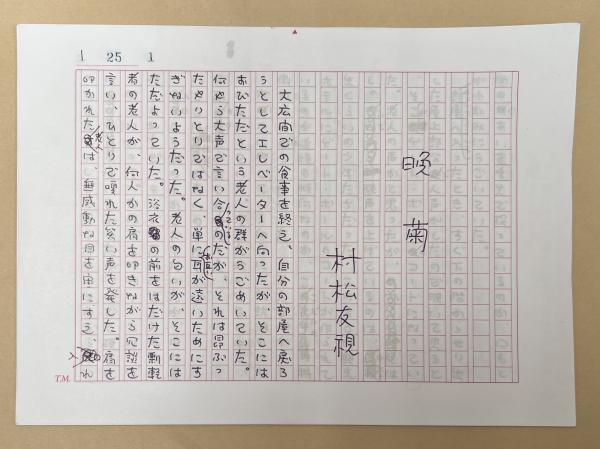 1 25 1
晩菊
村松友視
大広間での食事を終え、自分の部屋へ戻ろ
うとしてエレベーターへ向ったが、そこには
おびただという老人の群がうごめいていた。
何やら大声で言い合っているのだが、それは昂ぶっ
たやりとりではなく、単にお互い耳が遠いためにす
ぎないようだった。老人の匂いが、そこには
ただよっていた。浴衣の前をはだけた剽軽
者の老人が、何人かの肩を叩きながら冗談を
言い、ひとりで嗄れた笑い声を発した。肩を
叩かれた老人は、無感動な目を宙にすえ、入れ
T.M.